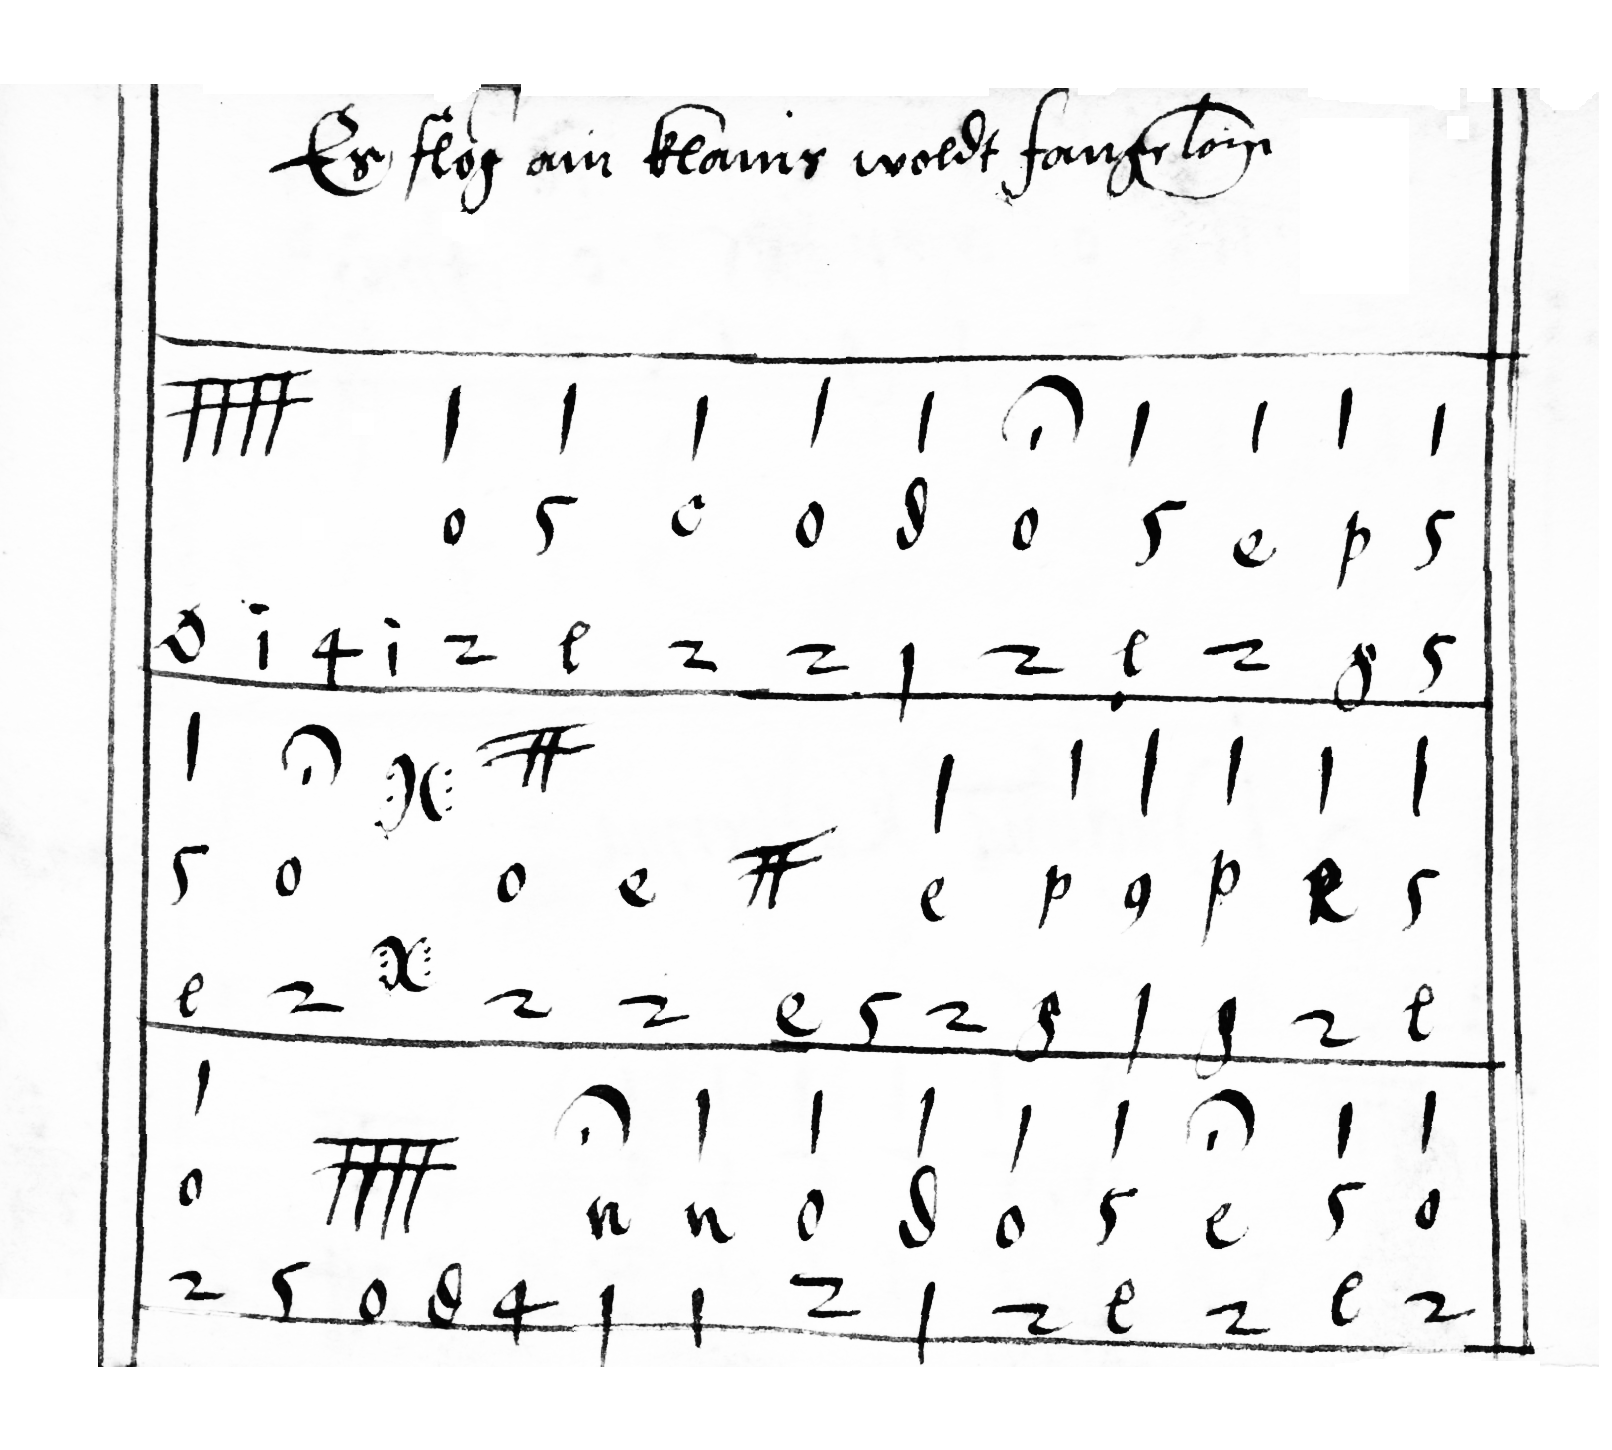 Es flog ain klains woldt fangerlain
o 5 c o d o 5 e p 5
d i 4 i 2 e 2 2 1 2 e 2 g 5
5 o o e e p 9 p k 5
e 2 2 2 e 5 2 g 1 g 2 e
o n n o d o 5 e 5 o
2 5 o d 4 1 1 2 1 2 e 2 e 2